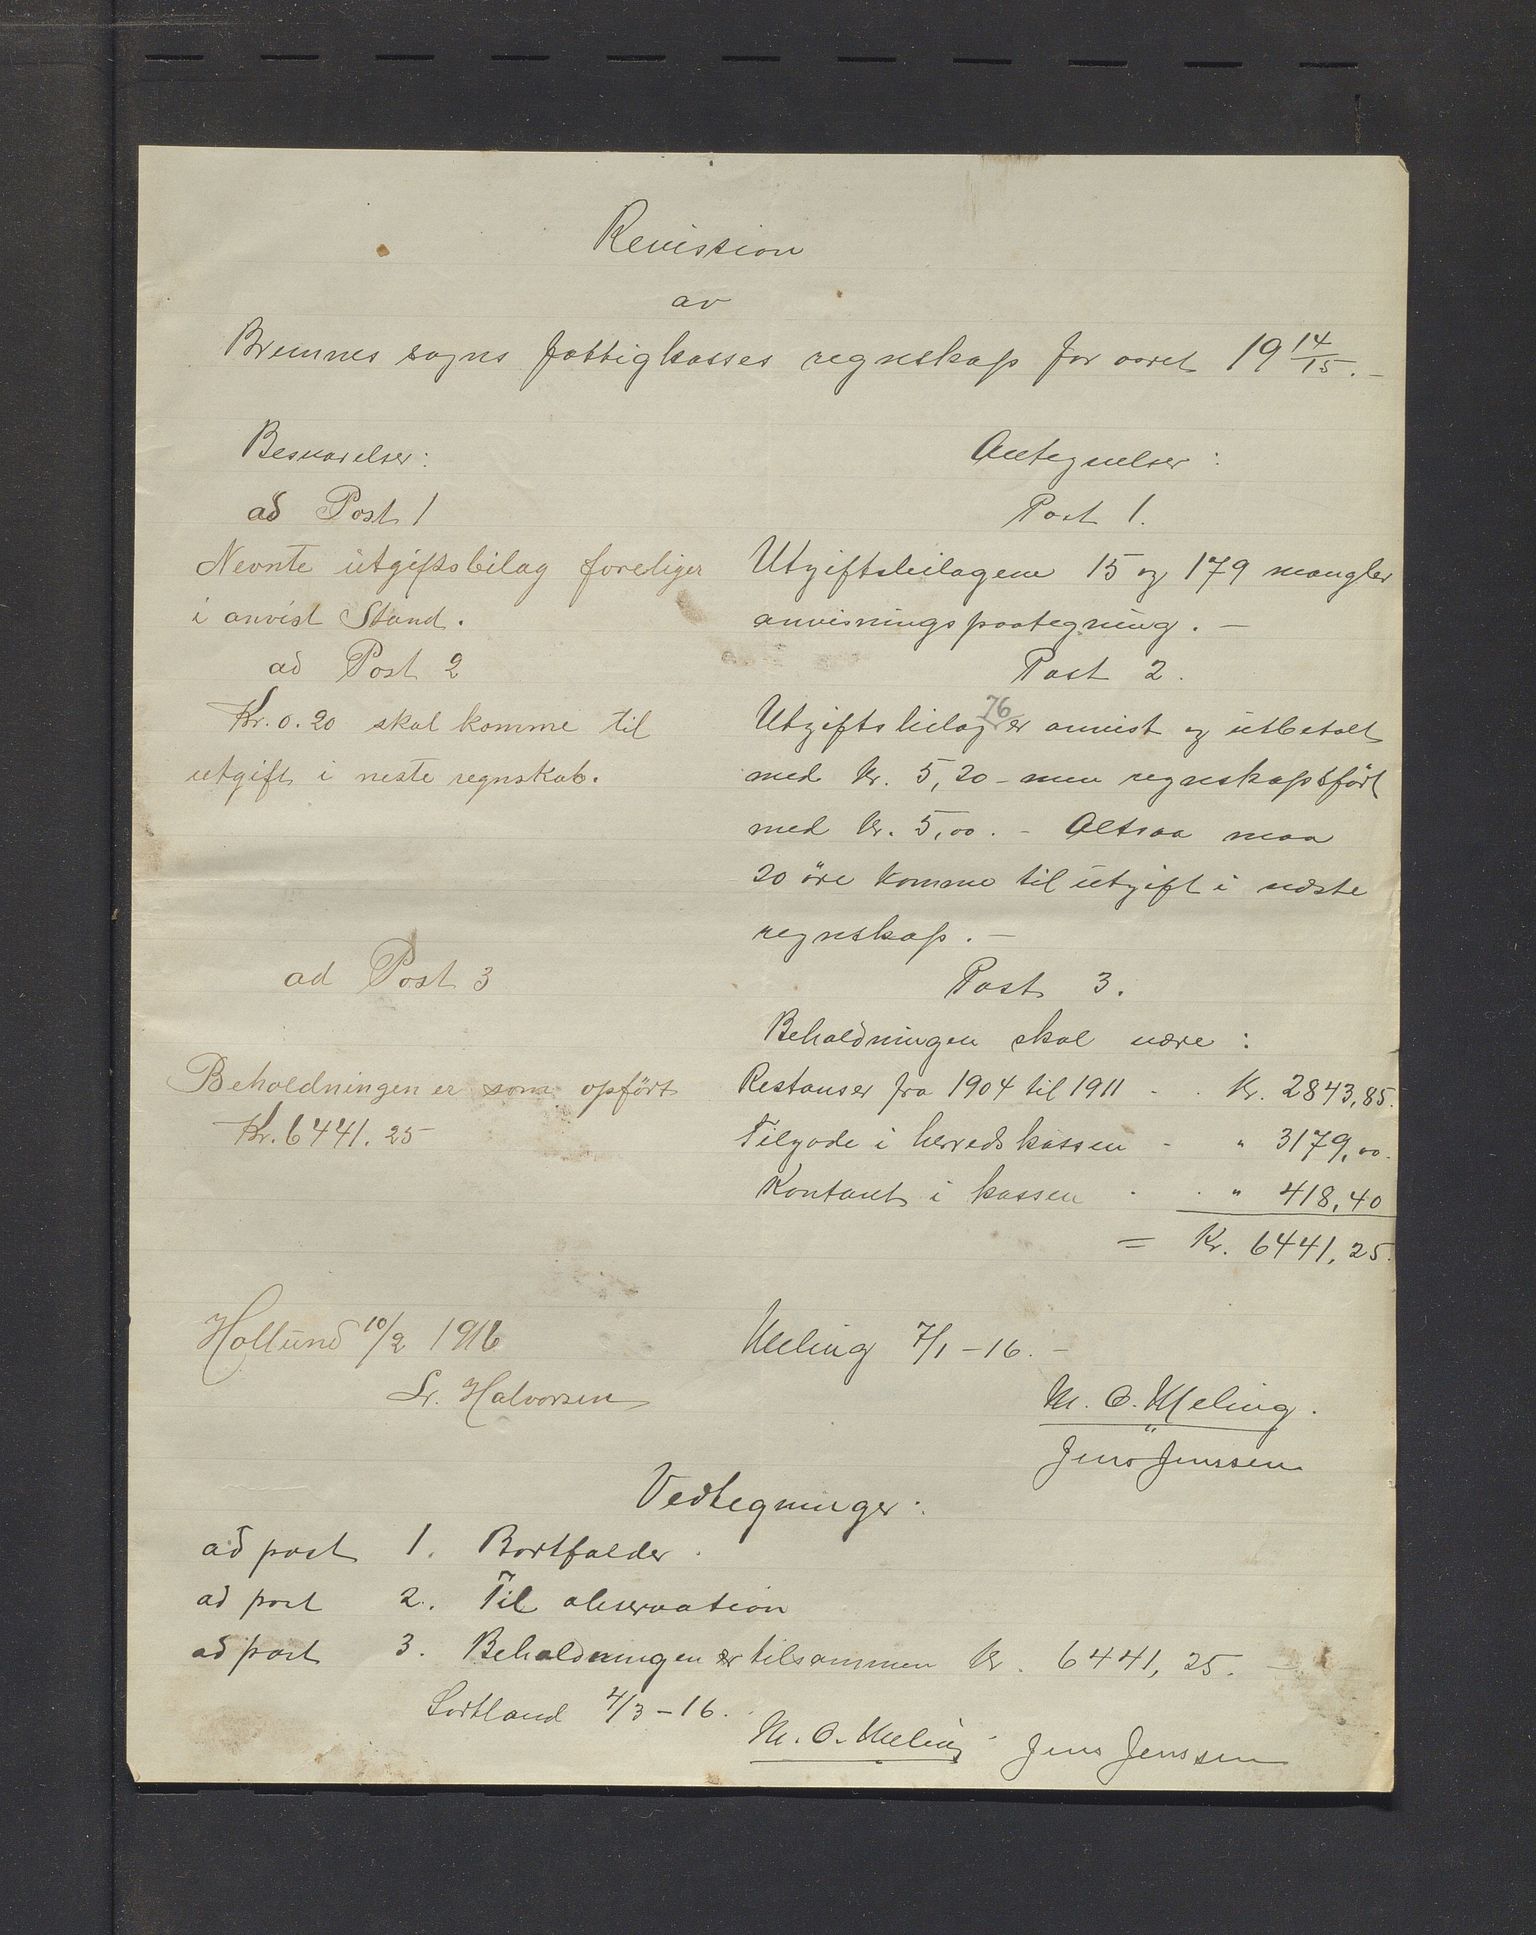 Revission
av
Bremnes sogns fattigkasses regnskap for aaret 19 14/15. -
Besvarelser:
ad Post 1
Nevnte utgiftsbilag foreliger
i anvist Stand.
ad Post 2
Kr. 0.20 skal komme til
utgift i neste regnskab.
ad Post 3
Beholdningen er som opført
Kr. 6441.25
Hollund 10/2 1916
Lr. Halvorsen
Antegnelser:
Post 1.
Utgiftsbilagene 15 og 179 mangler
anvisningspaategning. -
Post 2.
Utgiftsbilag 76 er anvist og utbetalt
med kr. 5,20 - men regnskapsført
med kr. 5,00. - Altsaa maa
20 öre komme til utgift i næste
regnskap. -
Post 3.
Beholdningen skal være:
Restanser fra 1904 til 1911 - . Kr. 2843,85.
Tilgode i herredskassen - " 3179,00.
Kontant i kassen . . " 418,40
= Kr. 6441,25.
Meling 7/1 - 16. -
M. O. Meling.
Jens Jenssen
Vedtegninger:
ad post 1. Bortfalder.
ad post 2. Til observation
ad post 3. Beholdningen er tilsammen kr. 6441,25. -
Sortland 4/3 - 16.
M. O. Meling Jens Jenssen